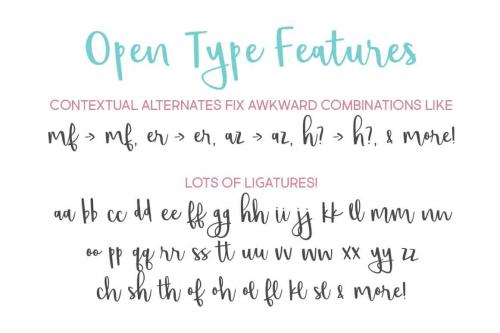 Open Type Features
CONTEXTUAL ALTERNATES FIX AWKWARD COMBINATIONS LIKE
mf → mf, er → er, az → az, h? → h?, & more!
LOTS OF LIGATURES!
aa bb cc dd ee ff gg hh ii jj kk ll mm nn
oo pp qq rr ss tt uu vv ww xx yy zz
ch sh th of oh ol fl kl sl & more!